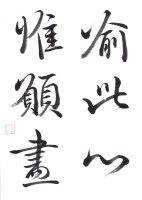 俞此心
惟願畫